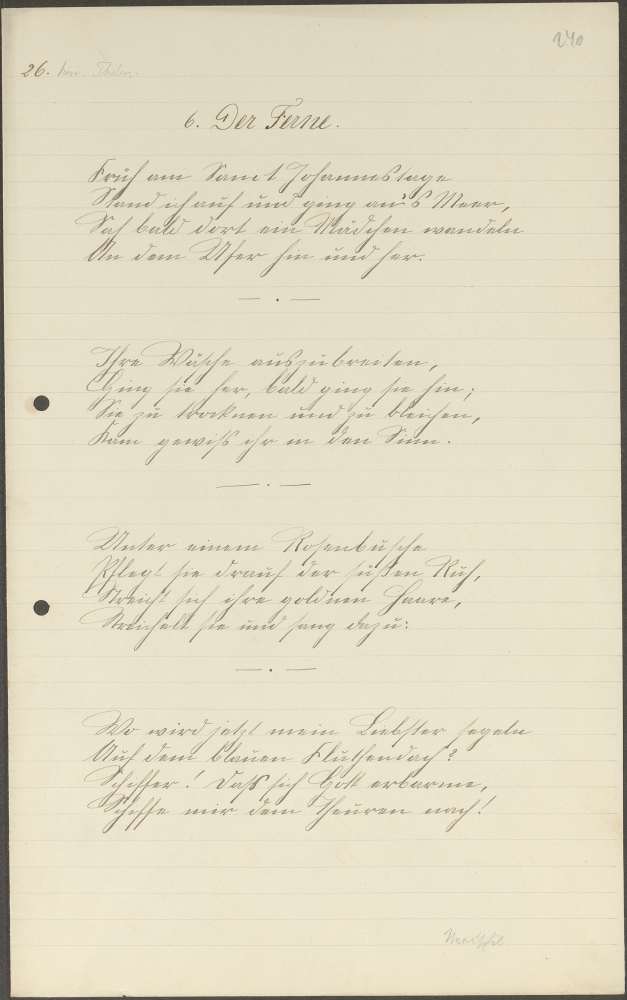 240
26.
6. Der Ferne.
Früh am Sanct Johannestage
Stand ich auf und ging an's Meer,
Sah bald dort ein Mädchen wandeln
An dem Ufer hin und her.
Ihre Wäsche auszubreiten,
Ging sie her, bald ging sie hin;
Sie zu trocknen und zu bleichen,
Kam gewiß ihr in den Sinn.
Unter einem Rosenbusche
Pflegt sie drauf der süßen Ruh,
Streicht sich ihre goldnen Haare,
Streichelt sie und sang dazu:
Wo wird jetzt mein Liebster segeln
Auf dem blauen Fluthendach?
Schiffer! Daß sich Gott erbarme,
Schiffe mir dem Theuren nach!